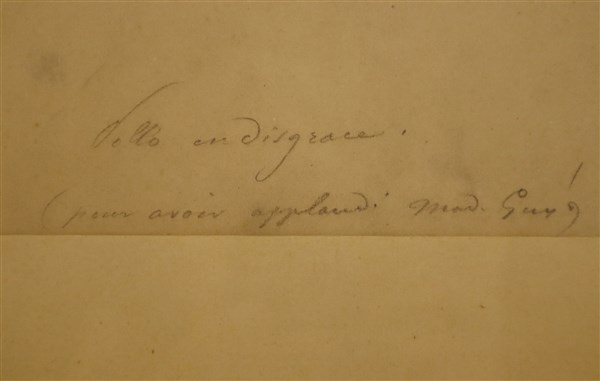 en disgrace.
(pour avoir applaudi Mad. Guy!)